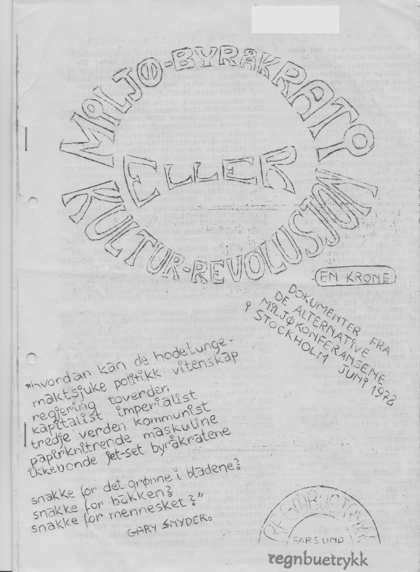 MILJØ-BYRÅKRATI
ELLER
KULTUR-REVOLUSJON
EN KRONE
DOKUMENTER FRA
DE ALTERNATIVE
MILJØKONFERANSENE
I STOCKHOLM JUNI 1972
"hvordan kan de hodelunge-
maktsjuke politikk vitenskap
regjering toverden
kapitalist imperialist
tredje verden kommunist
papirknitrende maskuline
ikkebonde jet-set byråkratene
snakke for det grønne i bladene?
snakke for bakken?
snakke for mennesket?"
GARY SNYDER.
REGNBUETRYKK
FARSUND
regnbuetrykk